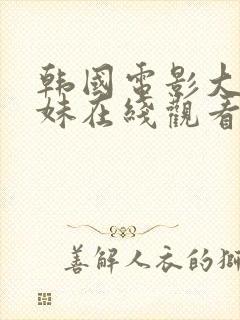 韩國電影大
妹在綫觀看
善解人衣的獅